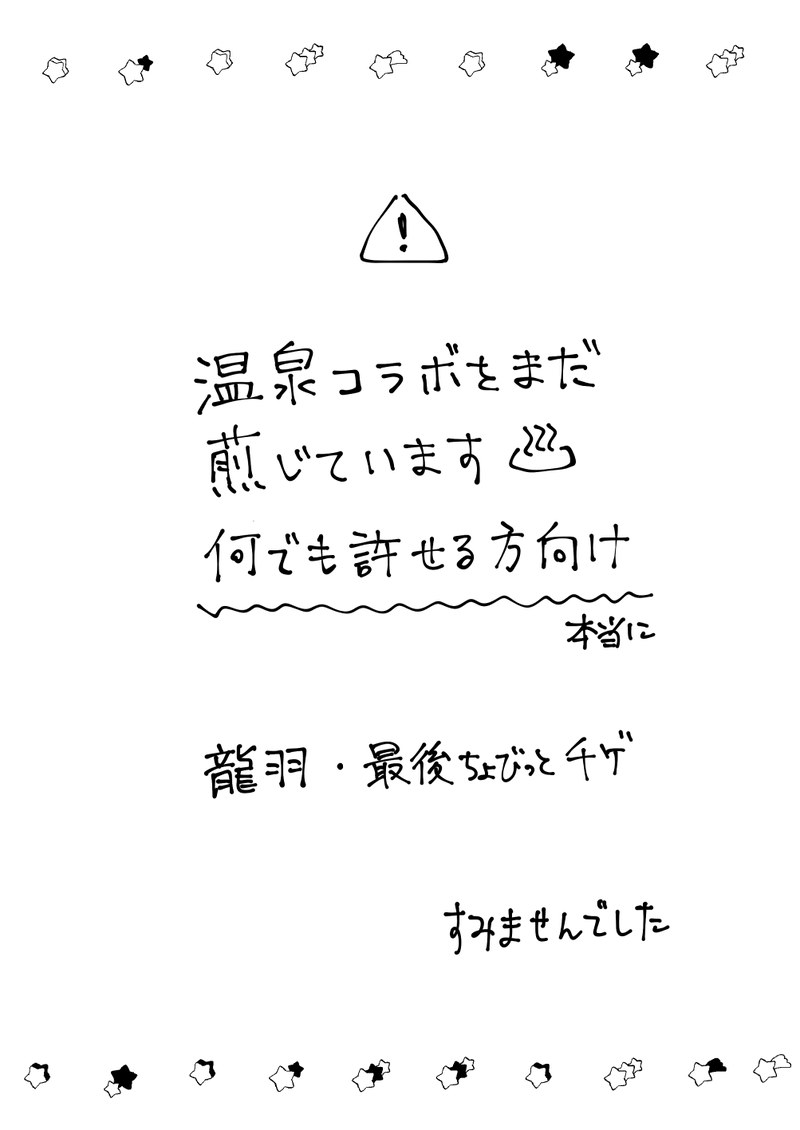 !
温泉コラボをまだ
煎じています
何でも許せる方向け
本当に
龍羽・最後ちょびっとチゲ
すみませんでした